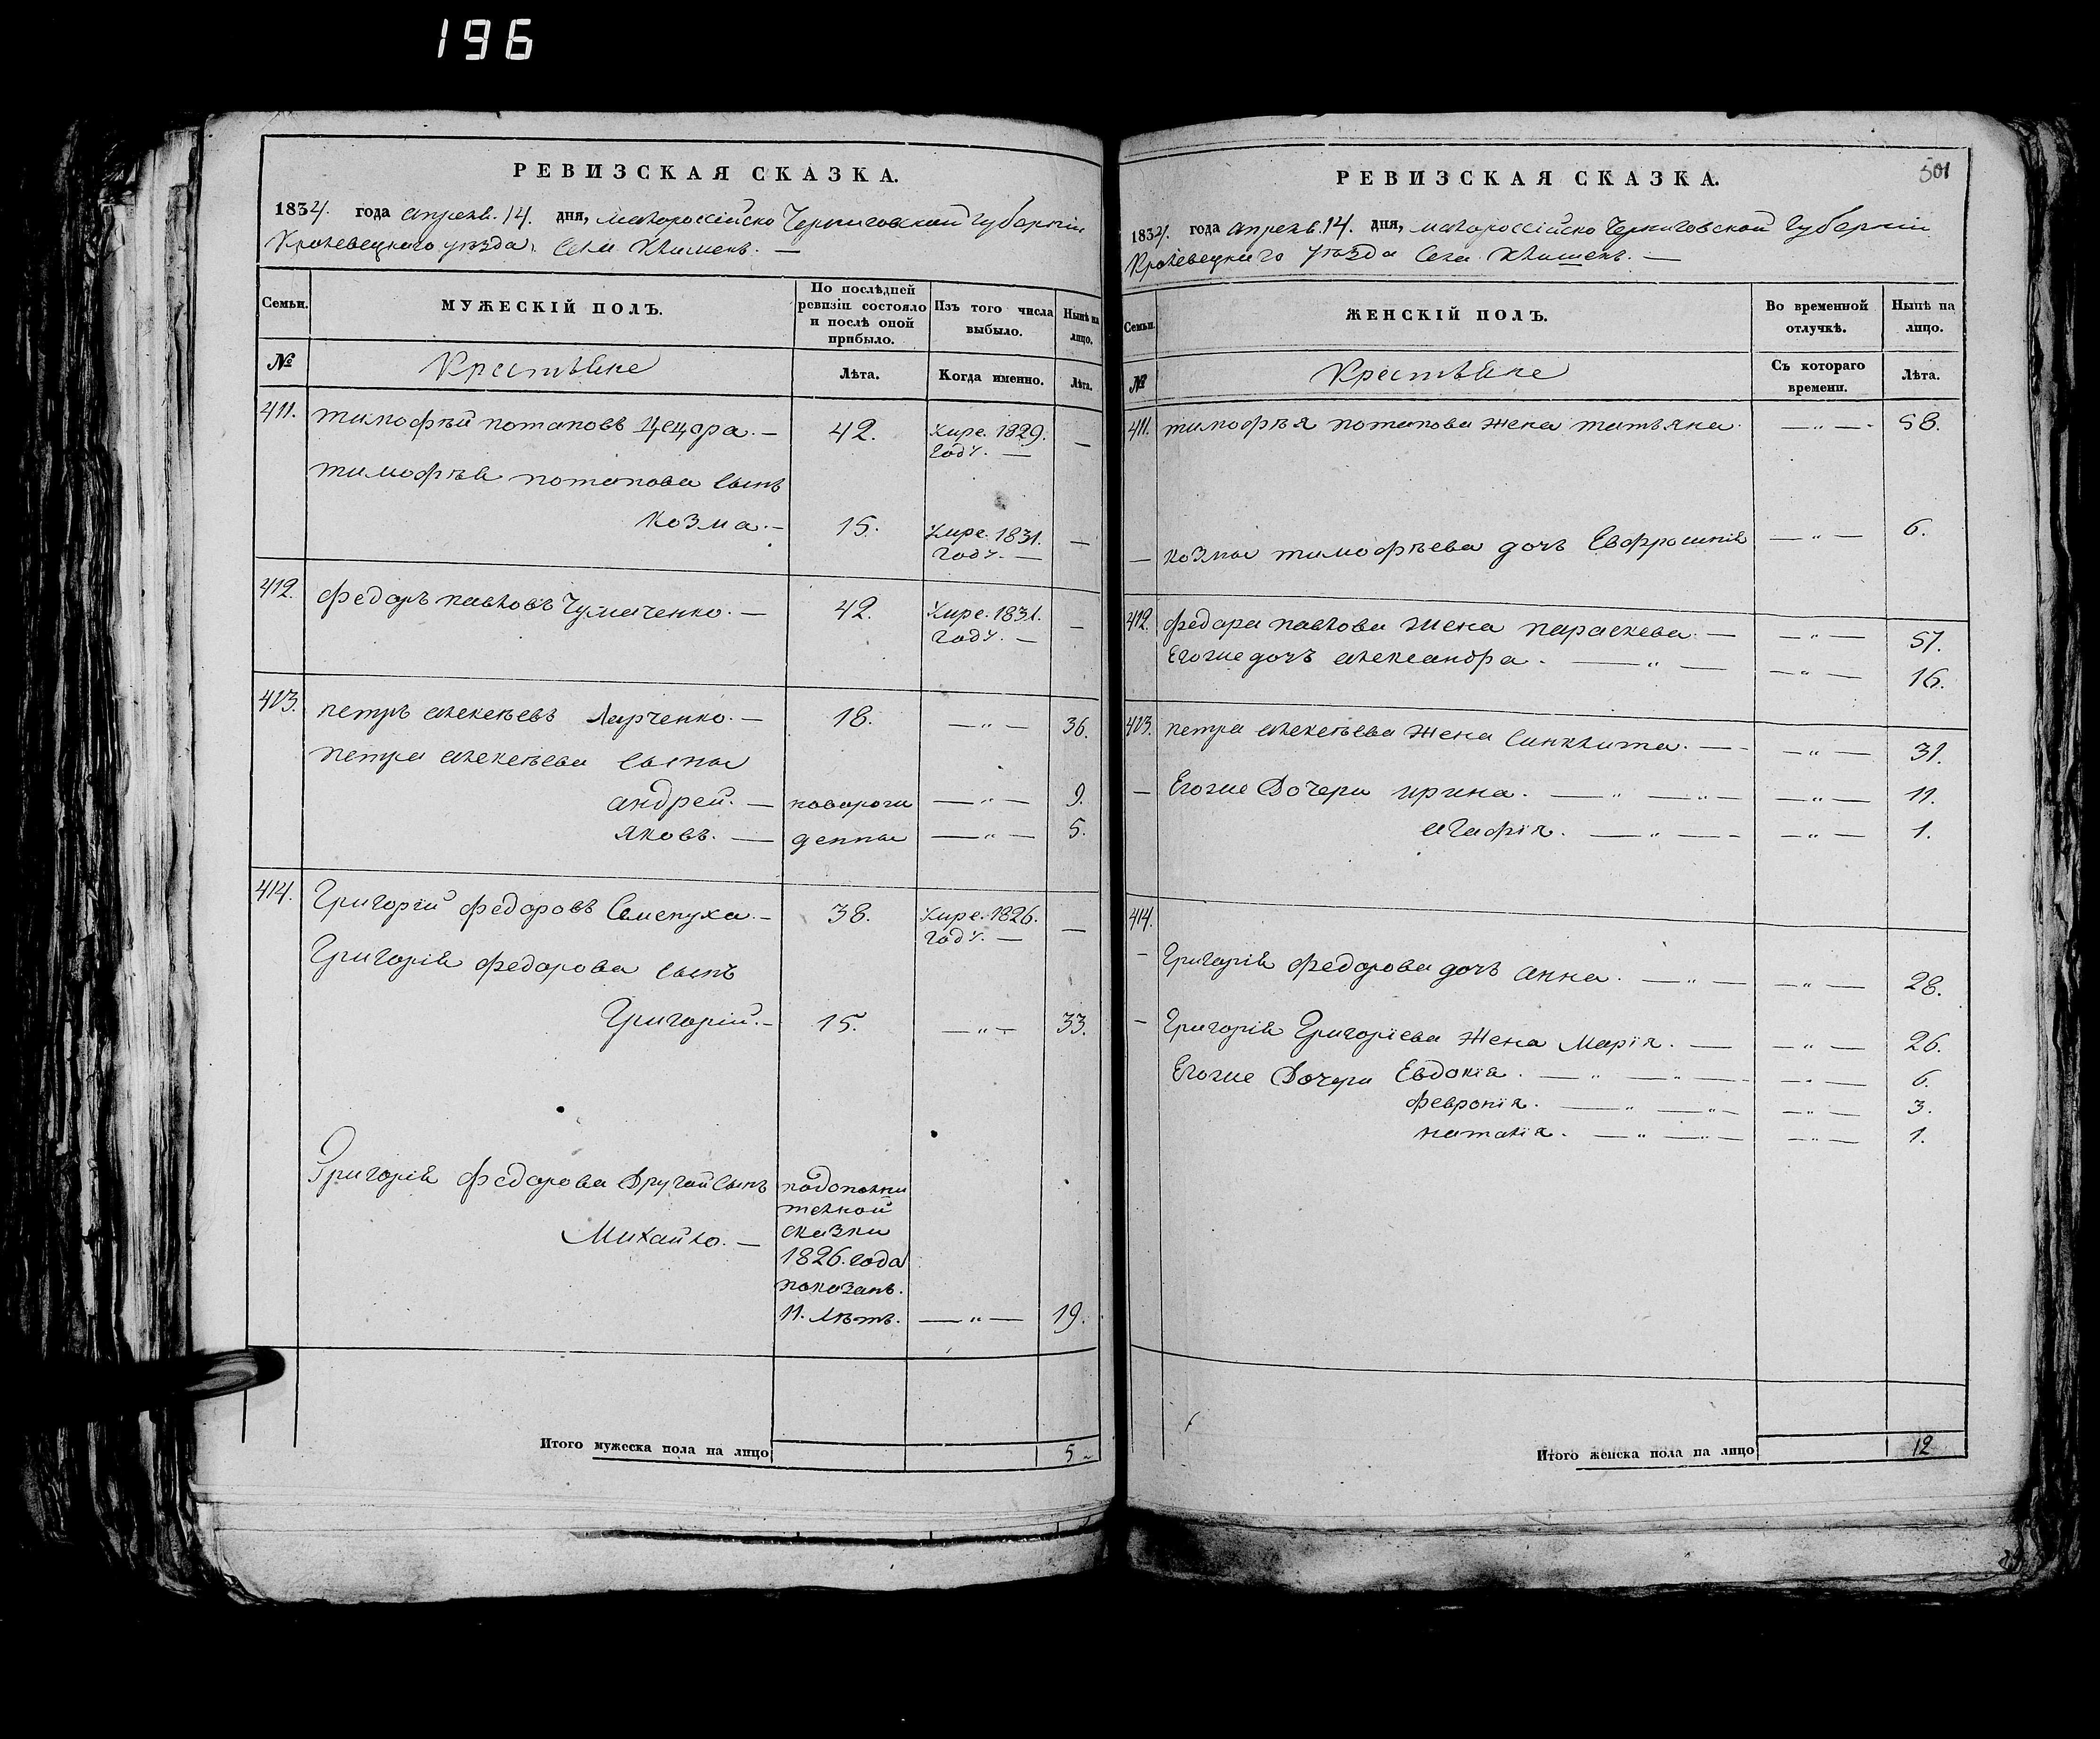 196
РЕВИЗСКАЯ СКАЗКА.
1834. года апреля. 14. дня, малороссійско Черниговской губерніи
Кролевецкаго уезда, села Клишекъ. —
Семьи.
МУЖЕСКІЙ ПОЛЪ.
По послѣдней ревизіи состояло и послѣ оной прибыло.
Изъ того числа выбыло.
Нынѣ на лицо.
№
Крестьяне
Лѣта.
Когда именно.
Лѣта.
411. тимофѣй потаповъ — 42. умре. 1829. году. — —
тимофѣя потапова сынъ
козма. — 15. умре. 1831. году. — —
412. федоръ павловъ Чумаченко. — 42. умре. 1831. году. — —
413. петръ алексѣевъ Ларченко. — 18. — „ — 36.
петра алексѣева сыны
андрей. — новорож — „ — 9.
яковъ. — денны — „ — 5.
414. Григорій федоровъ Семенуха. — 38. умре. 1826. году. — —
Григорія федорова сынъ
Григорій. — 15. — „ — 33.
Григорія федорова другой сынъ
Михайло. —
подополни
телной
сказки
1826. года
показанъ.
11. лѣтъ. — „ — 19.
Итого мужеска пола на лицо 5
РЕВИЗСКАЯ СКАЗКА.
501
1834. года апреля. 14. дня, малороссійско Черниговской губерніи
Кролевецкаго уезда села Клишекъ. —
Семьи.
ЖЕНСКІЙ ПОЛЪ.
Во временной отлучкѣ.
Нынѣ на лицо.
№
Крестьяне
Съ котораго времени.
Лѣта.
411. тимофѣя потапова жена татьяна. — „ — 58.
— козмы тимофѣева дочь Евфросинія — „ — 6.
412. федора павлова жена параскева. — — „ — 51.
Егоже дочь александра. — „ — — „ — 16.
413. петра алексѣева жена синклита. — — „ — 31.
— Егоже дочери ирина. — „ — „ — — „ — 11.
агафія. — „ — — — „ — 1.
414.
— Григорія федорова дочь анна. — „ — — „ — 28.
— Григорія Григоріева жена Марія. — — „ — 26.
Егоже дочери Евдокія. — „ — „ — — „ — 6.
февронія. — „ — „ — — „ — 3.
наталія. — „ — „ — — „ — 1.
Итого женска пола на лицо 12